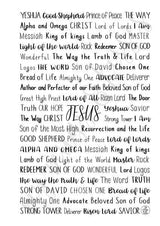 YESHUA Good Shepherd Prince of Peace THE WAY
Alpha and Omega CHRIST Lord of Lords I Am
Messiah King of kings Lamb of God MASTER
Light of the world Rock Redeemer SON OF GOD
Wonderful The Way the Truth & Life Lord
Logos THE WORD Son of David Chosen One
Bread of Life Almighty One ADVOCATE Deliverer
Author and Perfecter of our Faith Beloved Son of God
Great High Priest LORD OF ALL Risen Lord The Door
Truth OUR HOPE JESUS Yeshua SAVIOR
The Way CHRIST Strong Tower I Am
Son of the Most High Resurrection and the Life
GOOD SHEPHERD Prince of Peace Lord of Lords
ALPHA AND OMEGA Messiah King of kings
Lamb of God Light of the World Master Rock
REDEEMER SON OF GOD WONDERFUL Lord Logos
The way the truth & life The Word TRUTH
SON OF DAVID CHOSEN ONE Bread of life
Almighty One Advocate Beloved Son of God
STRONG TOWER Deliverer Risen Lord SAVIOR